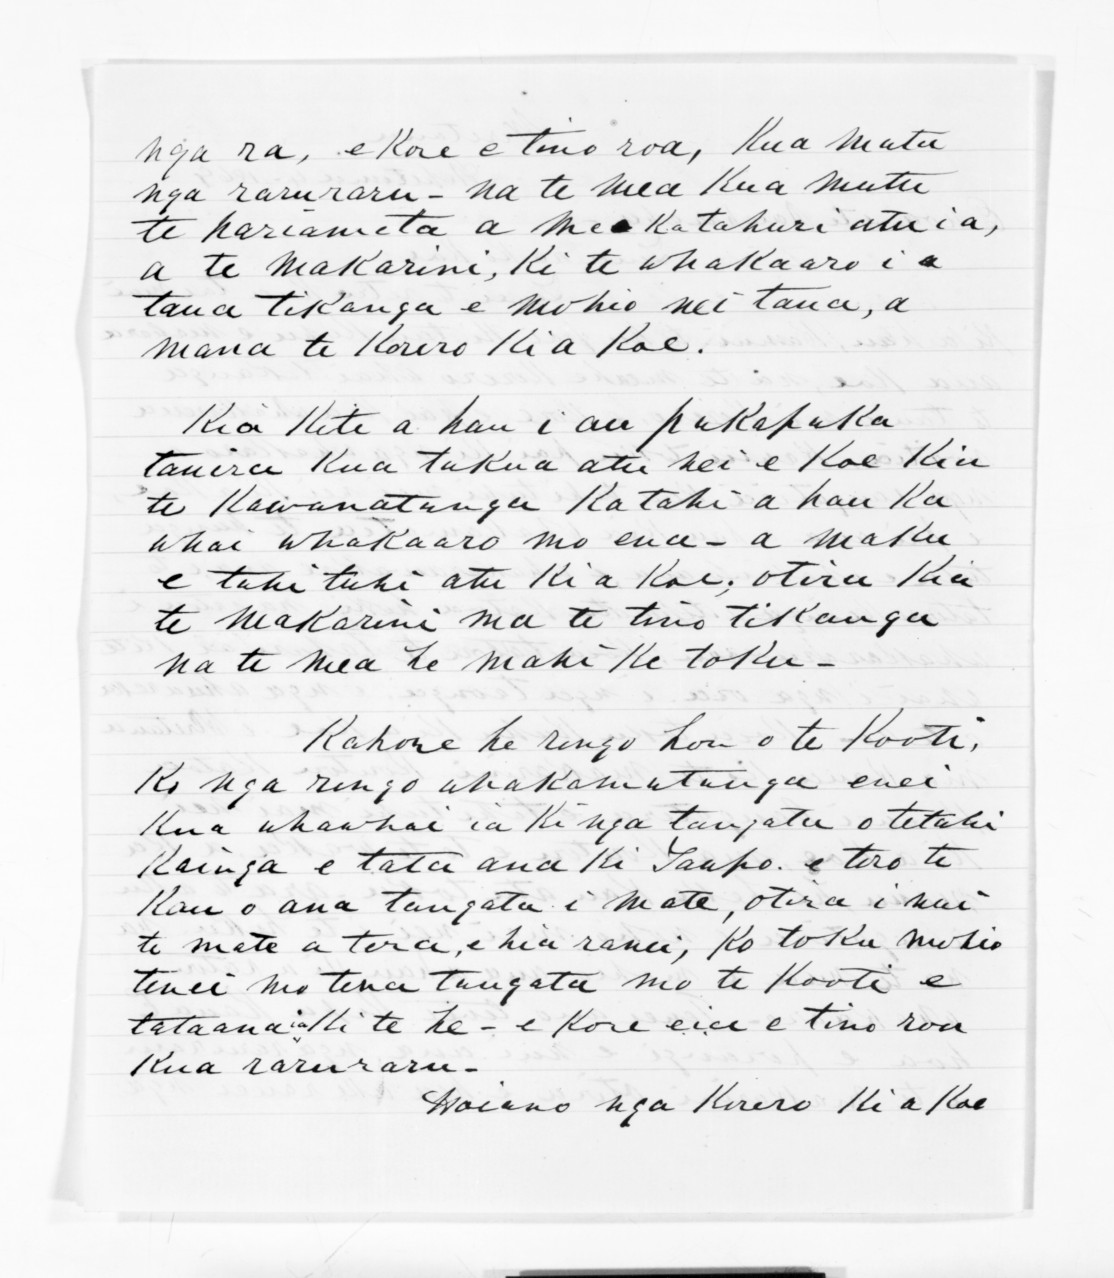 nga ra, e kore e tino roa, kua mutu
nga raruraru - na te mea kua mutu
te pariameta a me katahuri atu ia,
a te Makarini, ki te whakaaro i a
tana tikanga e mohio nei tana, a
mana te korero ki a koe.
Kia kite a hau i au pukapuka
tauira kua tukua atu nei e koe kia
te Kawanatanga katahi a hau ka
whai whakaaro mo ena - a maku
e tuhi tuhi atu ki a koe; otira kia
te Makarini ma te tino tikanga
na te mea he mahi ke toku -
Kahore he rongo hou o te Kooti,
Ko nga rongo whakamutunga enei
Kua whawhai ia ki nga tangata o tetahi
Kainga e tata ana ki Taupo. e toro te
Kau o ana tangata i mate, otira i nui
te mate a tera, e hia ranei, ko toku mohio
tenei mo tena tangata mo te Kooti e
tataana ia ki te he - e kore eia e tino roa
kua raruraru -
Hoiano nga korero ki a koe